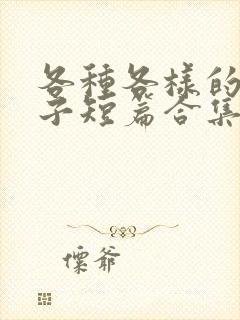 各種各樣的
子短篇合集
慄爺